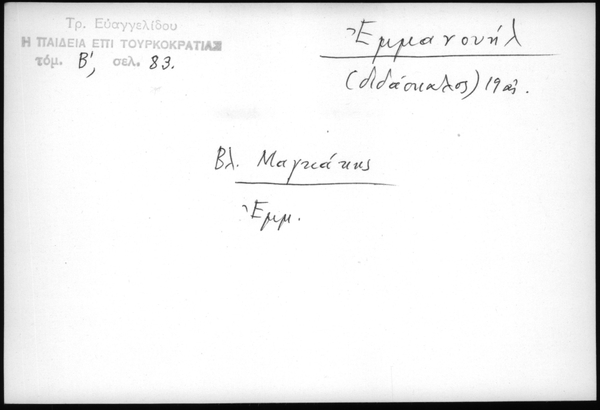 Τρ. Εὐαγγελίδου
Η ΠΑΙΔΕΙΑ ΕΠΙ ΤΟΥΡΚΟΚΡΑΤΙΑΣ
τόμ. Β', σελ. 83.
Ἐμμανουήλ
(διδάσκαλος) 19 αἰ.
Βλ. Μαγκάκης
Ἐμμ.